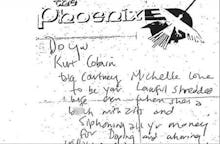 the
Phoenix
Do you
Kurt Cobain
take Courtney Michelle Love
to be your Lawful shredded
wife even when she's a
b tch with zits and
siphoning all yr money
for doping and whoring